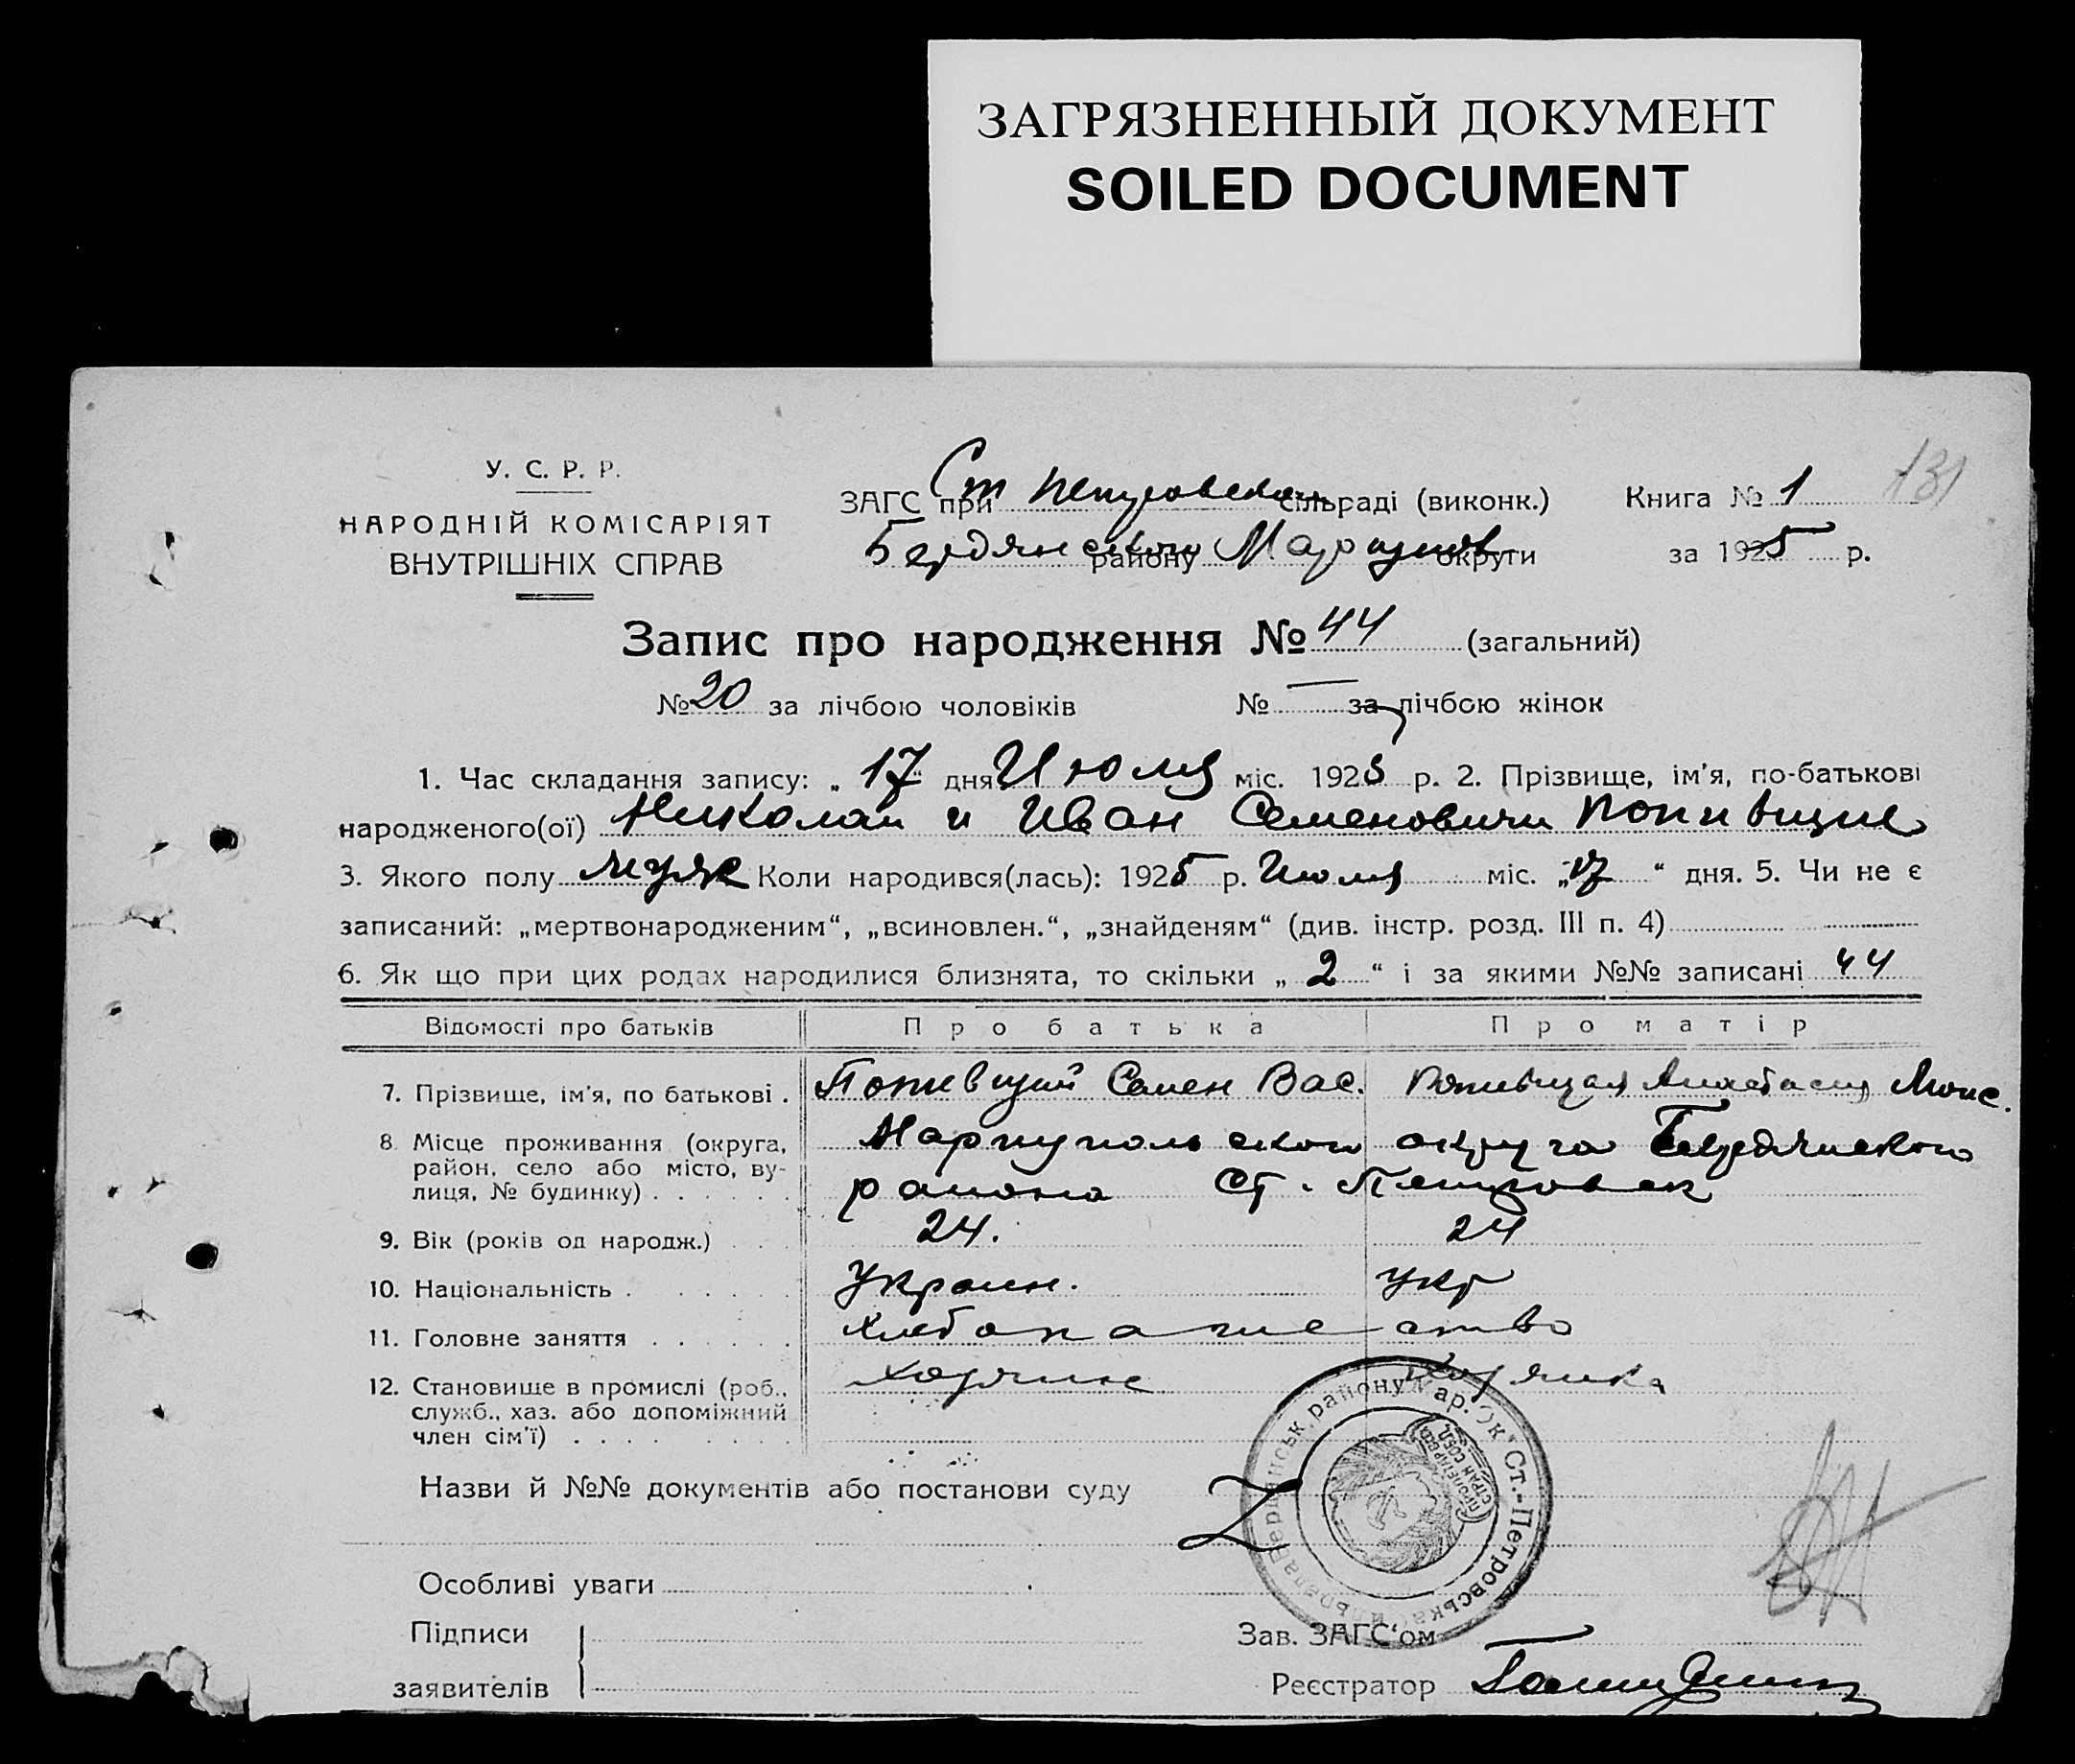 ЗАГРЯЗНЕННЫЙ ДОКУМЕНТ
SOILED DOCUMENT
131
У. С. Р. Р.
НАРОДНІЙ КОМІСАРІЯТ
ВНУТРІШНІХ СПРАВ
ЗАГС при Ст Петровском сільраді (виконк.)
Бердянского району Мариупол округи
Книга № 1
за 1925 р.
Запис про народження № 44 (загальний)
№ 20 за лічбою чоловіків № — за лічбою жінок
1. Час складання запису: „ 17 " дня Июля міс. 1925 р. 2. Прізвище, ім'я, по-батькові
народженого(ої) Николай и Иван Семеновичи
3. Якого полу муж Коли народився(лась): 1925 р. Июля міс. „ 17 “ дня. 5. Чи не є
записаний: „мертвонародженим“, „всиновлен.“, „знайденям“ (див. інстр. розд. III п. 4)
6. Як що при цих родах народилися близнята, то скільки „ 2 “ і за якими №№ записані 44
Відомості про батьків Про батька Про матір
7. Прізвище, ім'я, по батькові . Семен Вас. Анастасия
8. Місце проживання (округа, район, село або місто, вулиця, № будинку) Мариупольского округа Бердянского
района Ст. Петровск
9. Вік (років од народж.) 24. 24
10. Національність Украин. Укр
11. Головне заняття Хлебопашество
12. Становище в промислі (роб., служб., хаз. або допоміжний член сім'ї)
Назви й №№ документів або постанови суду
Особливі уваги
Підписи
заявителів
Зав. ЗАГС'ом
Реєстратор
району Мар. Ок. Ст.-Петровська